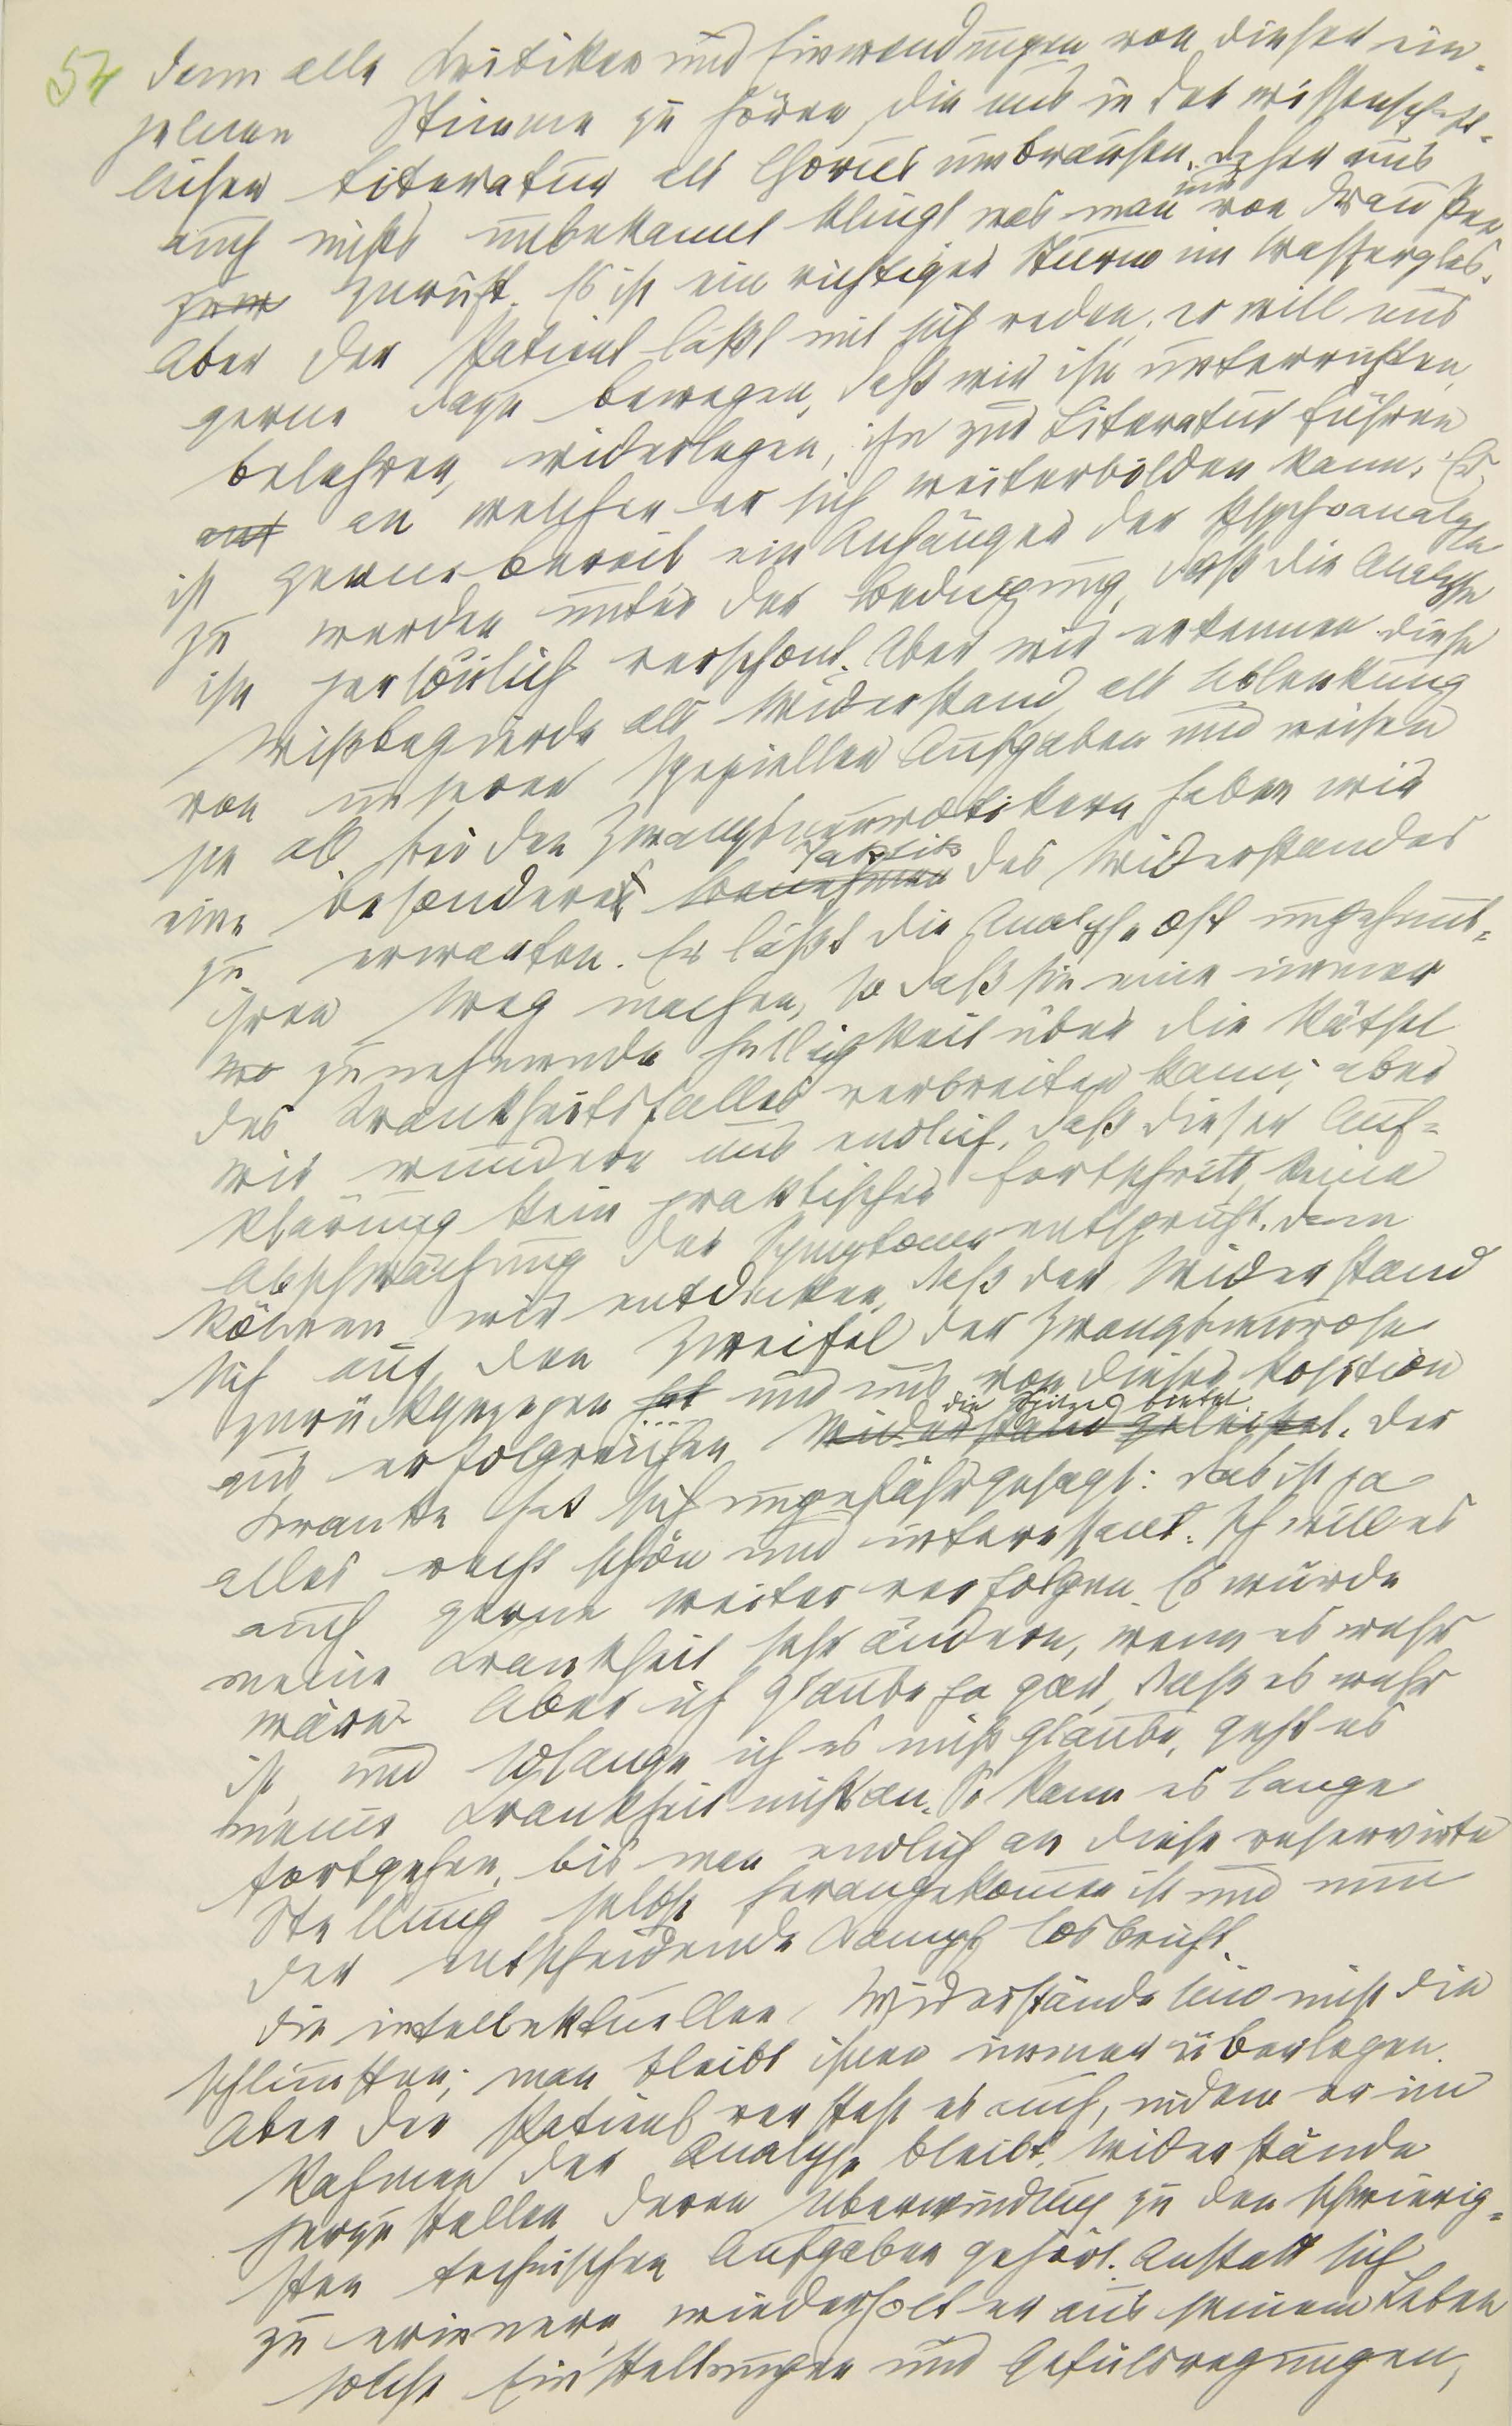 54 denn alle Kritiken und Einwendungen von diesen ein-
zelnen Stimme zu hören, die uns in der wissenschaft-
lichen Literatur als Chorus umbrausen. Daher uns
auch nichts unbekannt klingt was man uns von draußen
zuruft. Es ist ein richtiger Sturm im Wasserglas.
Aber der Patient läßt mit sich reden; er will uns
gerne dazu bewegen, daß wir ihn unterrichten,
belehren, widerlegen, ihn zur Literatur führen
an welcher er sich weiterbilden kann. Er
ist gerne bereit ein Anhänger der Psychoanalyse
zu werden unter der Bedingung, daß die Analyse
ihn persönlich verschont. Aber wir erkennen diese
Wißbegierde als Widerstand, als Ablenkung
von unseren speziellen Aufgaben und weisen
sie ab. Bei den Zwangsneurotikern haben wir
eine besondere Taktik des Widerstandes
zu erwarten. Er läßt die Analyse oft ungehemmt
ihren Weg machen, so daß sie eine immer
zunehmende Helligkeit über die Rätsel
des Krankheitsfalles verbreiten kann, aber
wir wundern uns endlich, daß dieser Auf-
klärung kein praktischer Fortschritt, keine
Abschwächung der Symptome entspricht. Dann
können wir entdecken, daß der Widerstand
sich auf den Zweifel der Zwangsneurose
zurückgezogen hat und uns von dieser Position
aus erfolgreichen die Spitze bietet. Der
Kranke hat sich ungefähr gesagt: Das ist ja
alles recht schön und interessant. Ich will es
auch gerne weiter verfolgen. Es würde
meine Krankheit sehr ändern, wenn es wahr
wäre. Aber ich glaube ja gar, daß es wahr
ist und solange ich es nicht glaube, geht es
meine Krankheit nichts an. So kann es lange
fortgehen, bis man endlich an diese reservirte
Stellung selbst herangekommen ist und nun
der entscheidende Kampf losbricht.
Die intellektuellen Widerstände sind nicht die
schlimmsten; man bleibt ihnen immer überlegen.
Aber der Patient versteht es auch, indem er im
Rahmen der Analyse bleibt, Widerstände
herzustellen deren Überwindung zu den schwierig-
sten technischen Aufgaben gehört. Anstatt sich
zu erinnern, wiederholt er aus seinem Leben
solche Einstellungen und Gefülsregungen,